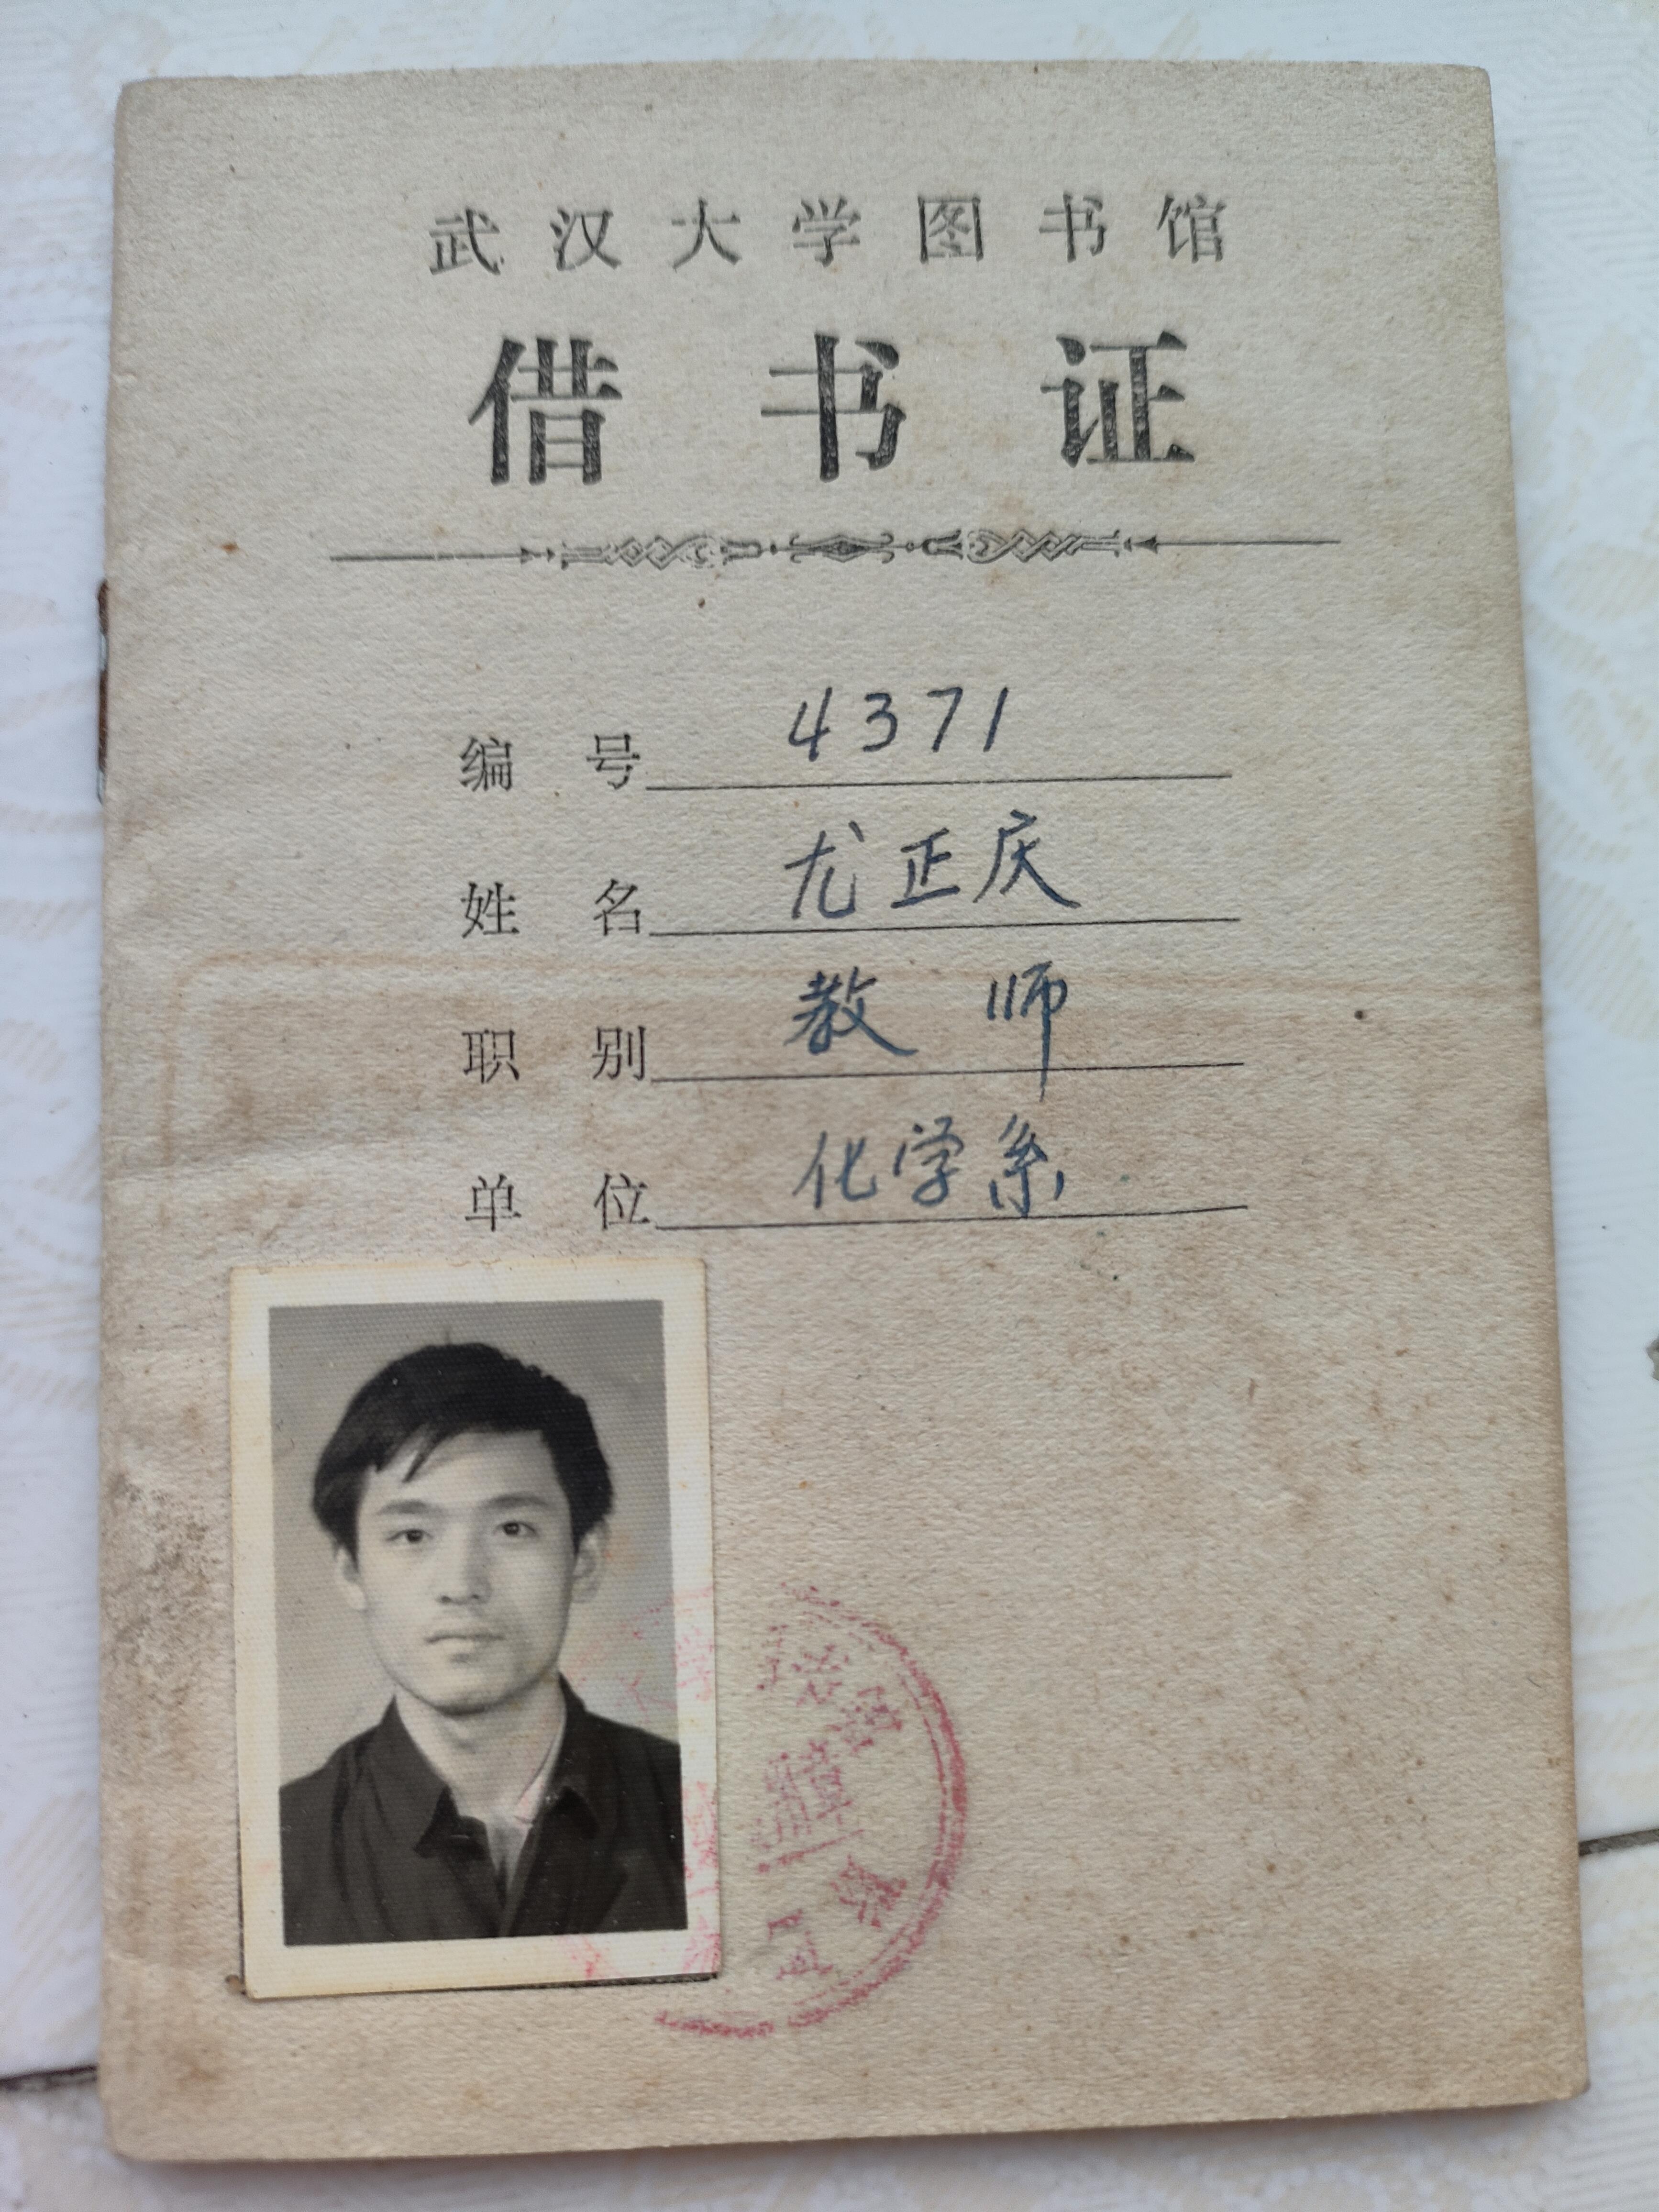 武汉大学图书馆
借书证
编号 4371
姓名 尤正庆
职别 教师
单位 化学系